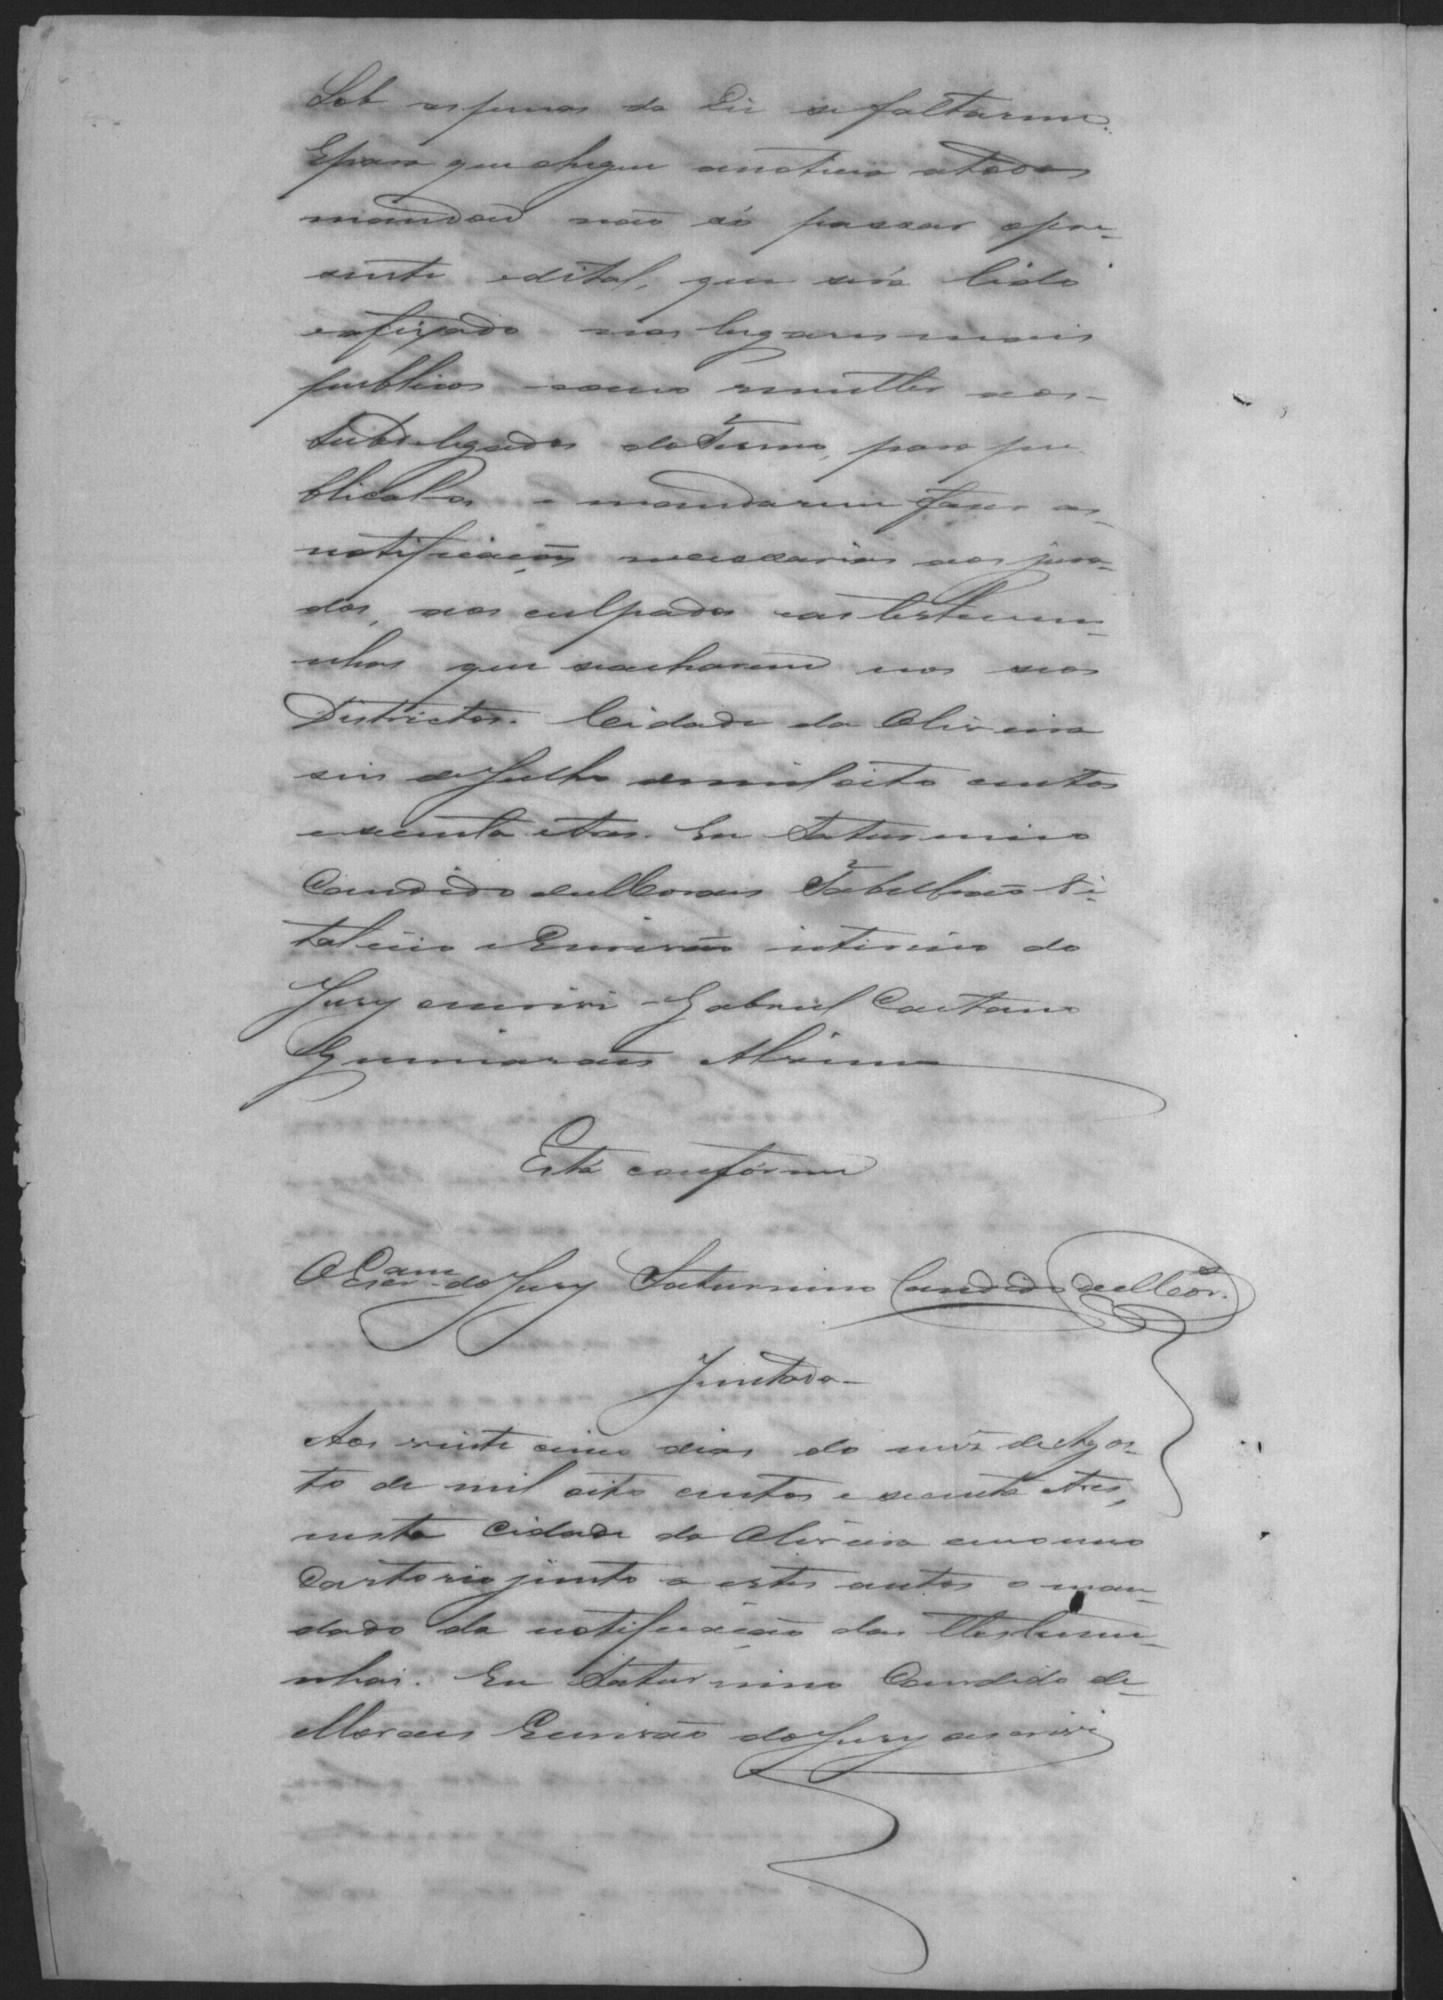 Sob as penas da Lei se faltarem.
E para que chegue a noticia a todos
mandou não só passar o pre-
sente edital, que será lido
e afixado nos lugares mais
publicos como remetter aos
Subdelegados do Termo, para pu
blicalos e mandarem fazer as
notificações necessarias aos jura-
dos, aos culpados e as testemu-
nhas que se acharem nos seos
Districtos. Cidade da Oliveira
seis de Julho de mil oito centos
e secenta e tres. Eu Saturnino
Candido de Moraes Tabelião Vi-
talicio e Escrivão interino do
Jury escrivi - Gabriel Caetano
Guimarães Alvim
Está conforme
O Escram do Jury Saturnino Candido de Mor.s
Juntada
Aos vinte cinco dias do mez de Agos-
to de mil oito centos e secenta e tres,
nesta Cidade da Oliveira em o meo
Cartorio junto a estes autos o man-
dado da notificação das Testemu-
nhas. Eu Saturnino Candido de
Moraes Escrivão do Jury escrivi